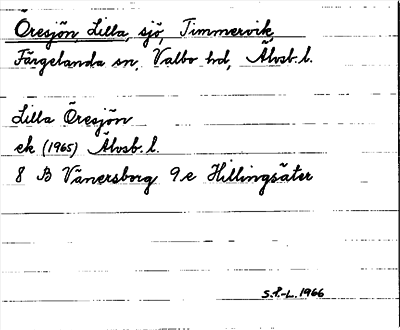 Öresjön, Lilla, sjö, Timmervik,
Färgelanda sn, Valbo hd, Älvsb. l.
Lilla Öresjön
ek (1965) Älvsb. l.
8 B Vänersborg 9 e Hillingsäter
S.F.-L. 1966